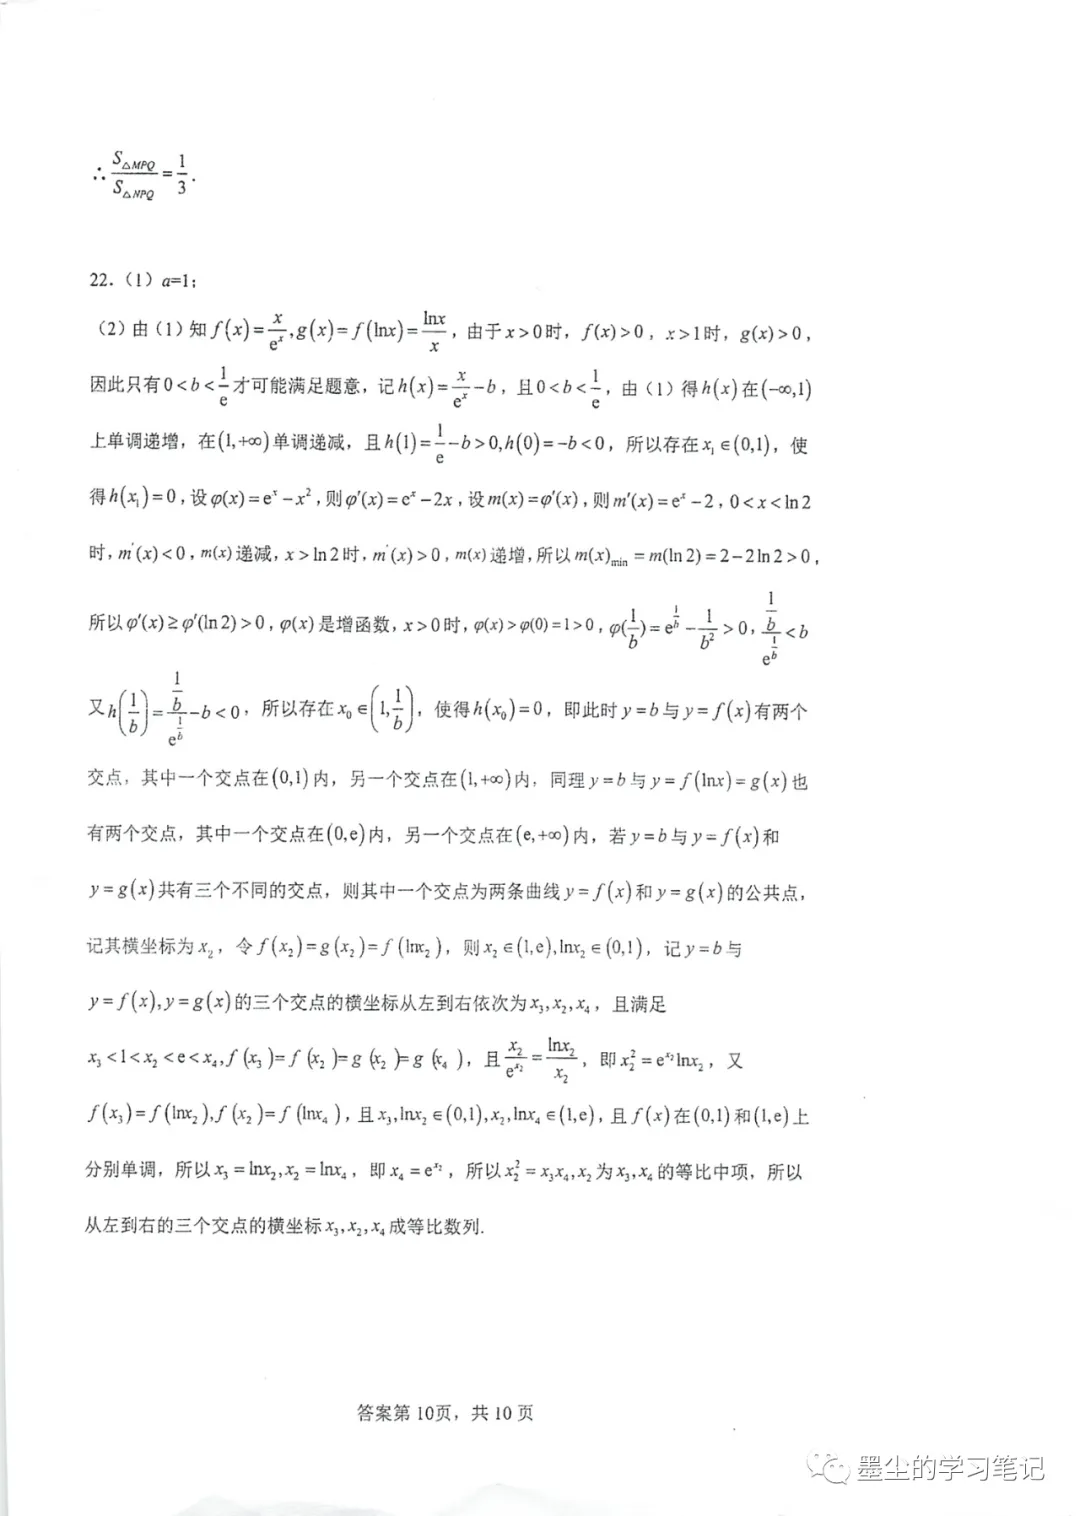 ∴ S△MPQ / S△NPQ = 1/3.
22.(1) a=1;
(2)由(1)知 f(x)=x/eˣ, g(x)=f(lnx)=lnx/x,由于 x>0时,f(x)>0,x>1时,g(x)>0,
因此只有 0<b<1/e 才可能满足题意,记 h(x)=x/eˣ-b,且 0<b<1/e,由(1)得 h(x) 在 (-∞,1)
上单调递增,在 (1,+∞) 单调递减,且 h(1)=1/e-b>0, h(0)=-b<0,所以存在 x₁∈(0,1),使
得 h(x₁)=0,设 φ(x)=eˣ-x²,则 φ′(x)=eˣ-2x,设 m(x)=φ′(x),则 m′(x)=eˣ-2,0<x<ln2
时,m′(x)<0,m(x) 递减,x>ln2时,m′(x)>0,m(x) 递增,所以 m(x)min=m(ln2)=2-2ln2>0,
所以 φ′(x)≥φ′(ln2)>0,φ(x) 是增函数,x>0时,φ(x)>φ(0)=1>0,φ(1/b)=e^(1/b)-1/b²>0,(1/b)/e^(1/b)<b
又 h(1/b)=(1/b)/e^(1/b)-b<0,所以存在 x₀∈(1,1/b),使得 h(x₀)=0,即此时 y=b 与 y=f(x) 有两个
交点,其中一个交点在 (0,1) 内,另一个交点在 (1,+∞) 内,同理 y=b 与 y=f(lnx)=g(x) 也
有两个交点,其中一个交点在 (0,e) 内,另一个交点在 (e,+∞) 内,若 y=b 与 y=f(x) 和
y=g(x) 共有三个不同的交点,则其中一个交点为两条曲线 y=f(x) 和 y=g(x) 的公共点,
记其横坐标为 x₂,令 f(x₂)=g(x₂)=f(lnx₂),则 x₂∈(1,e), lnx₂∈(0,1),记 y=b 与
y=f(x), y=g(x) 的三个交点的横坐标从左到右依次为 x₃,x₂,x₄,且满足
x₃<1<x₂<e<x₄, f(x₃)=f(x₂)=g(x₂)=g(x₄),且 x₂/e^(x₂)=lnx₂/x₂,即 x₂²=e^(x₂)lnx₂,又
f(x₃)=f(lnx₂), f(x₂)=f(lnx₄),且 x₃,lnx₂∈(0,1), x₂,lnx₄∈(1,e),且 f(x) 在 (0,1) 和 (1,e) 上
分别单调,所以 x₃=lnx₂, x₂=lnx₄,即 x₄=e^(x₂),所以 x₂²=x₃x₄, x₂ 为 x₃,x₄ 的等比中项,所以
从左到右的三个交点的横坐标 x₃,x₂,x₄ 成等比数列.
答案第 10页,共 10 页
墨尘的学习笔记